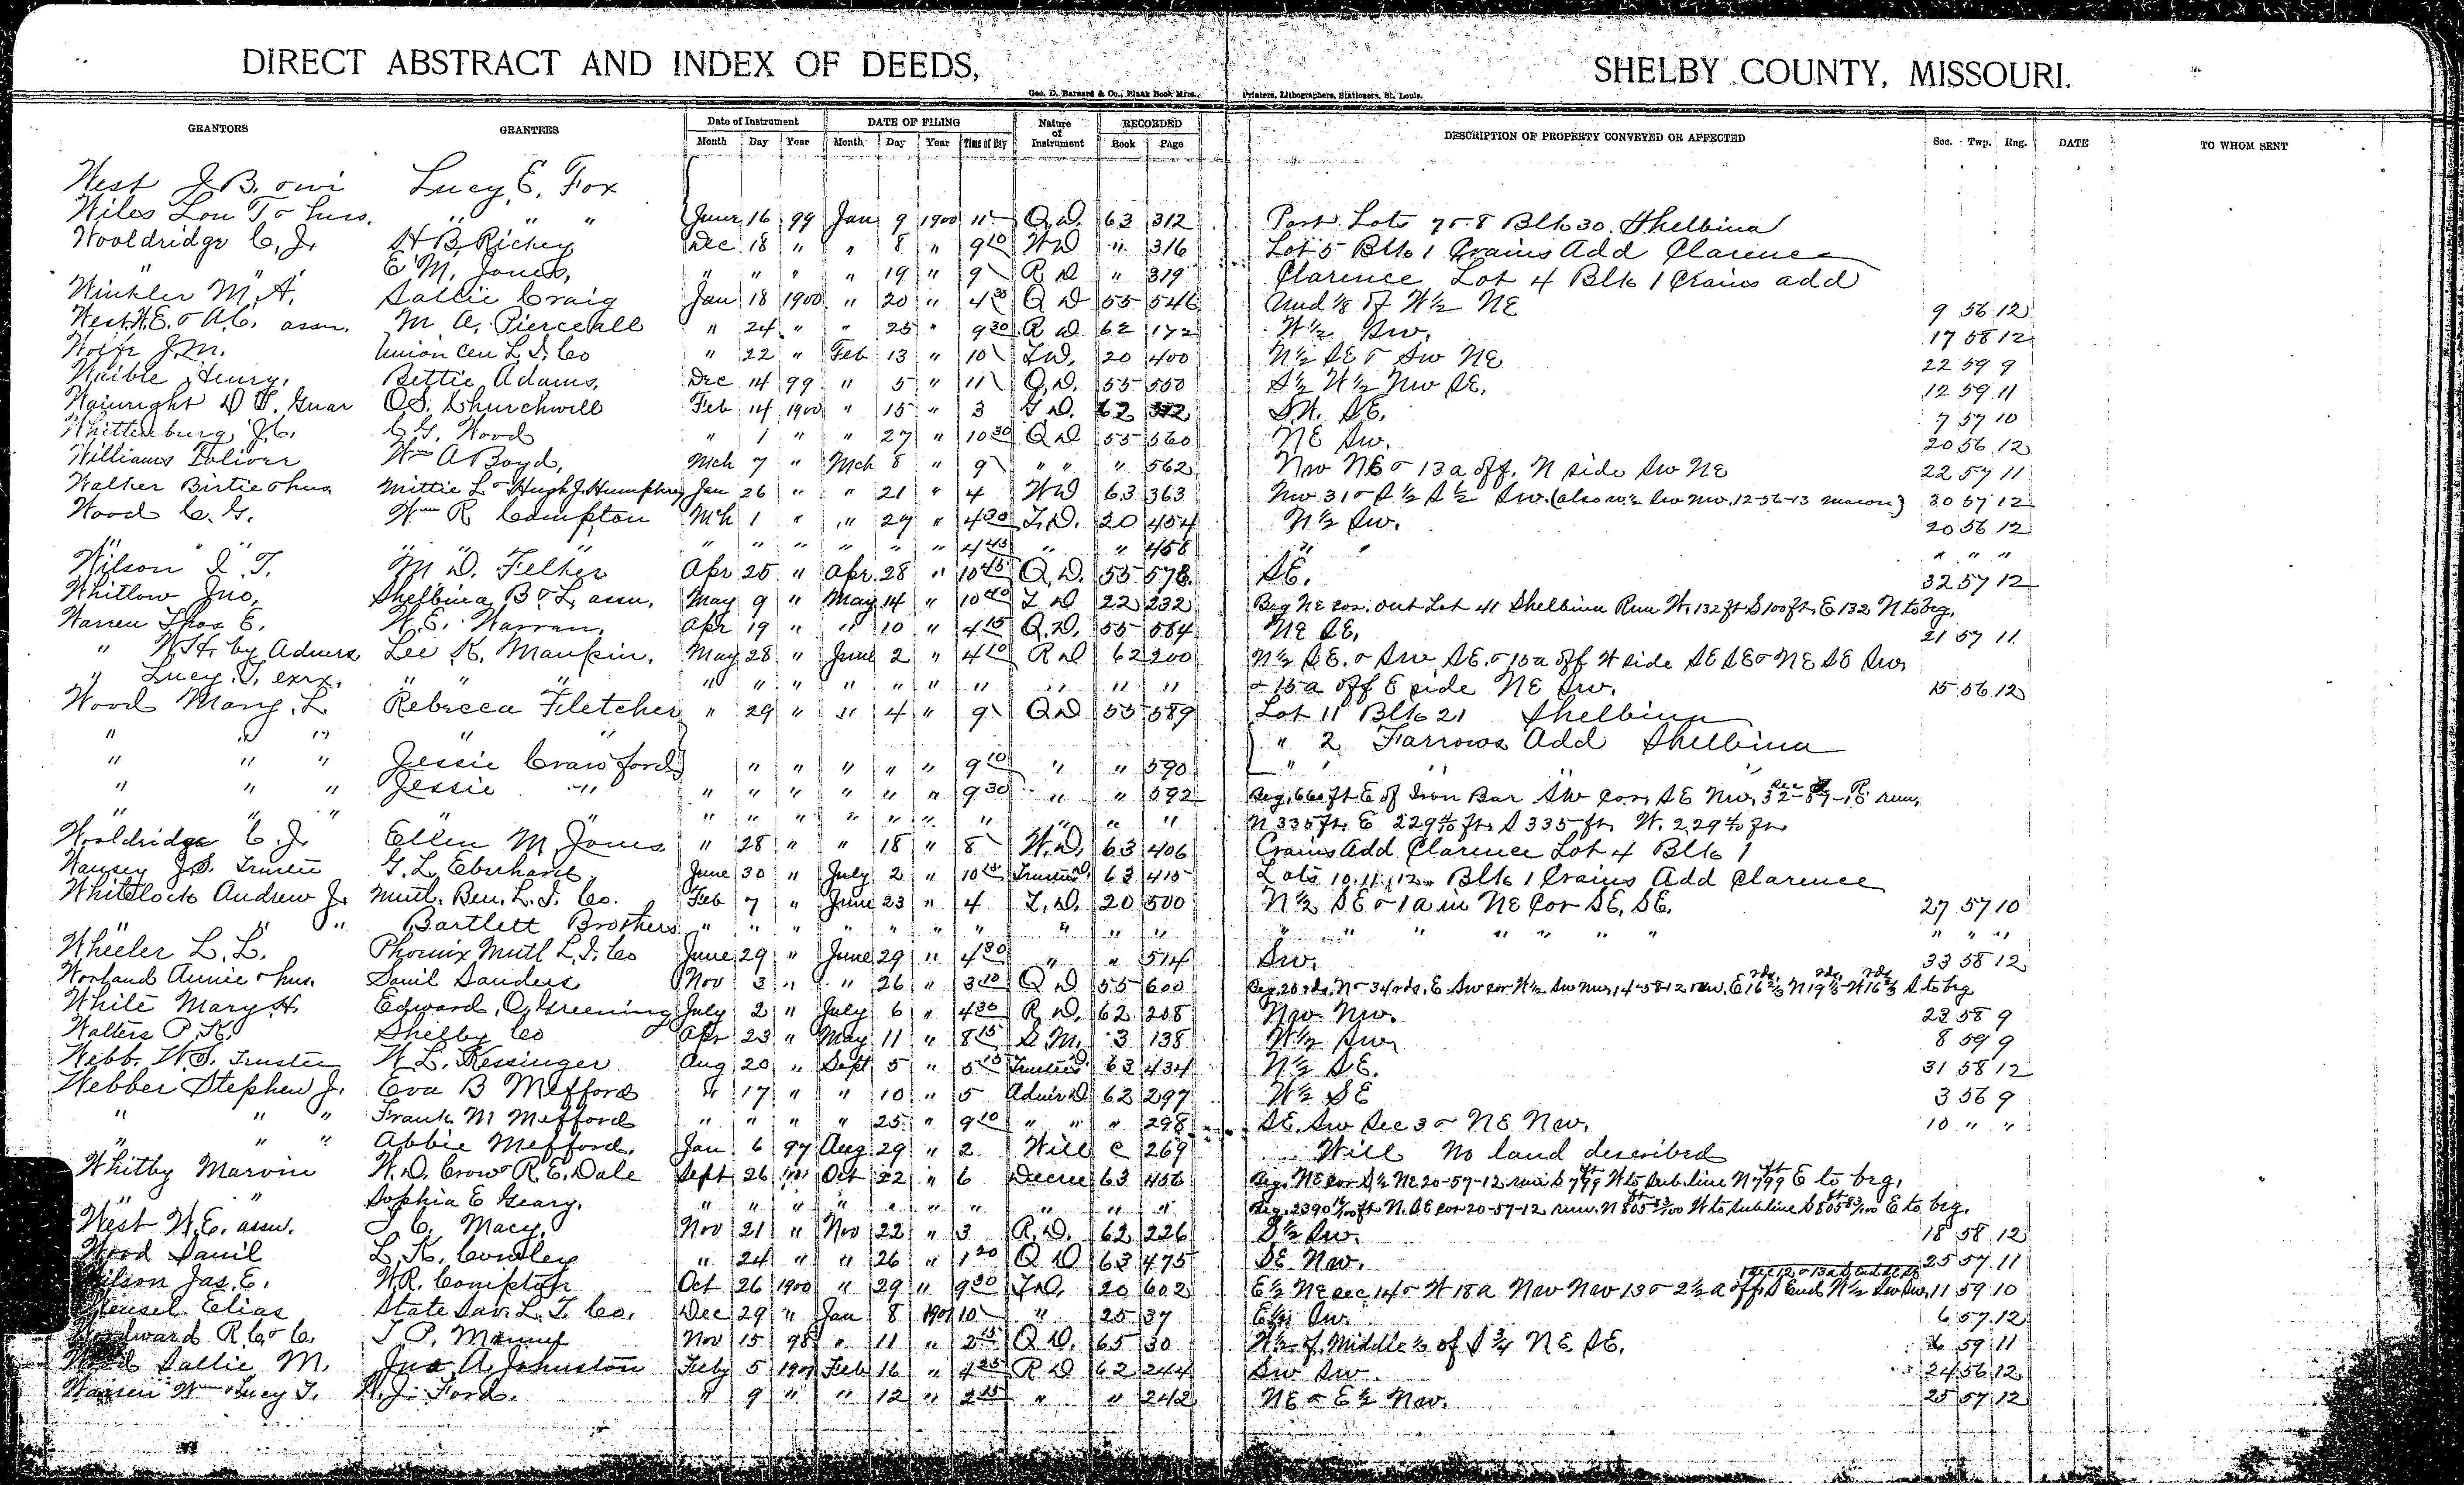 DIRECT ABSTRACT AND INDEX OF DEEDS, SHELBY COUNTY, MISSOURI.
Geo. D. Barnard & Co., Blank Book Mfrs., Printers, Lithographers, Stationers, St. Louis.
GRANTORS GRANTEES Date of Instrument DATE OF FILING Nature of Instrument RECORDED DESCRIPTION OF PROPERTY CONVEYED OR AFFECTED Sec. Twp. Rng. DATE TO WHOM SENT
Month Day Year Month Day Year Time of Day Book Page
West J. B. & wi Lucy E. Fox
Wiles Lou T & hus. " " " June 16 99 Jan 9 1900 11 Q.D. 63 312 Part Lots 7 & 8 Blk 30 Shelbina
Wooldridge C. J. H B. Richey Dec 18 " " 8 " 9 10 WD " 316 Lot 5 Blk 1 Crains Add Clarence
" " E M. Jones, " " " " 19 " 9 R D " 319 Clarence Lot 4 Blk 1 Crains add
Winkler M. A. Sallie Craig Jan 18 1900 " 20 " 4 30 Q D 55 546 Und 1/8 of W½ NE 9 56 12
West W.E. & A.C. assn. M A. Pierceall " 24 " " 25 " 9 30 R D 62 172 W½ SW. 17 58 12
Wolfe J.M. Union Cen L. I. Co " 22 " Feb 13 " 10 T.D. 20 400 N½ SE & SW NE 22 59 9
Waible Henry. Bettie Adams, Dec 14 99 " 5 " 11 Q.D. 55 550 S½ W½ NW SE. 12 59 11
Wainright D T. Guar O.S. Churchwell Feb 14 1900 " 15 " 3 G D. 62 SW. SE. 7 57 10
Whittenburg J.C. C G. Wood " 1 " " 27 " 10 30 Q D 55 560 NE SW. 20 56 12
Williams Toliver Wm A Boyd, Mch 7 " Mch 8 " 9 " " " 562 NW NE & 13 a off. N side SW NE 22 57 11
Walker Birtie & hus Mittie L & Hugh J. Humphrey Jan 26 " " 21 " 4 WD 63 363 NW 31 & S½ S½ SW. (also W½ SW NW. 12-56-13 Macon) 30 57 12
Wood C. G. Wm R Compton Mch 1 " " 29 " 4 30 T.D. 20 454 N½ SW. 20 56 12
" " " " " " " " " " " 4 45 " " 458 " " " " "
Wilson I. T. M D. Felker Apr 25 " Apr 28 " 10 45 Q.D. 55 578 SE. 32 57 12
Whitlow Jno, Shelbina B & L assn. May 9 " May 14 " 10 40 T D 22 232 Beg NE cor. out Lot 41 Shelbina Run W. 132 ft S 100 ft. E 132 N to beg.
Warren Thos E. W.E. Warren, Apr 19 " " 10 " 4 15 Q.D. 55 584 NE SE, 21 57 11
" W.H. by Admrx Lee K. Maupin. May 28 " June 2 " 4 10 R D 62 200 N½ SE. & SW SE. & 15 a off W side SE SE & NE SE SW
" Lucy. T. exrx. " " " " " " " " " " " " " & 15 a off E side NE SW. 15 56 12
Wood Mary. L Rebecca Fletcher " 29 " " 4 " 9 Q D 55 589 Lot 11 Blk 21 Shelbina
" " " " " " 2 Farrows Add Shelbina
" " " Jessie Crawford " " " " " 9 10 " " 590 " " " "
" " " Jessie " " " " " " " 9 30 " " 592 Beg. 660 ft E of Iron Bar SW cor. SE NW, run,
" " " " " " " " " " " " " N 335 ft. E 229 ft. S 335 ft. W. 229 ft.
Wooldridge C. J. Ellen M. Jones " 28 " " 18 " 8 W.D. 63 406 Crains Add Clarence Lot 4 Blk 1
J.S. Trustee G. L. Eberhard June 30 " July 2 " 10 Trustees D. 63 415 Lots 10, 11, 12. Blk 1 Crains Add Clarence
Whitelock Andrew J. Mutl. Ben. L. I. Co. Feb 7 " June 23 " 4 T.D. 20 500 N½ SE & 1a in NE cor SE. SE. 27 57 10
" " " Bartlett Brothers " " " " " " " " " " " " " " " " " "
Wheeler L. L. Phoenix Mutl L. I. Co June 29 " June 29 " 4 30 " " 514 SW. 33 58 12
Worland Annie & hus. Saml Sanders Nov 3 " " 26 " 3 10 Q D 55 600 Beg. 20 rds. N & 34 rds. E. SW cor W½ SW NW, 14-58-12 run, E 16⅔ N 19 W 16⅔ S to beg
White Mary H. Edward. O. Greening July 2 " July 6 " 4 30 R D. 62 208 NW NW. 23 58 9
Walters P. K. Shelby Co Apr 23 " May 11 " 8 15 S M. 3 138 W½ SW, 8 59 9
Webb. W.S. Trustee W. L. Kessinger Aug 20 " Sept 5 " 5 Trustees D 63 434 N½ SE. 31 58 12
Webber Stephen J. Eva B Mefford " 17 " " 10 " 5 Admr D 62 297 W½ SE 3 56 9
" " " Frank M Mefford " " " " 25 " 9 10 " " " 298 SE. SW Sec 3 & NE NW. 10 " "
" " " Abbie Mefford. Jan 6 97 Aug 29 " 2 Will C 269 Will No land described
Whitby Marvin W. D. Crow & R. E. Dale Sept 26 Oct 22 " 6 Decree 63 456 Beg. NE cor S½ NE 20-57-12 run S 799 ft W to Sub. line N 799 ft E to beg.
" " Sophia E Geary. " " " " " " " " " " Beg. 2390 ft N. SE cor 20-57-12 run. N 805 W to Sub line S 805 E to beg.
West W.E. assn. C. Macy, Nov 21 " Nov 22 " 3 R.D. 62 226 S½ SW. 18 58 12
Wood Danil L. K. " 24 " " 26 " 1 20 Q D 63 475 SE NW. 25 57 11
Wilson Jas. E. W.R. Compton Oct 26 1900 " 29 " 9 30 T.D. 20 602 E½ NE Sec 14 & W 18a NW NW 13 & 2½ a off S End W½ SW SW, 11 59 10
Elias State Sav. L. T. Co. Dec 29 " Jan 8 1901 10 " 25 37 E½ SW. 6 57 12
Woodward R C & C. T. P. Nov 15 98 " 11 " 2 15 Q D. 65 30 W½ of Middle ⅓ of S ¾ NE SE. 59 11
Wood Sallie M. Jno. A. Johnston Feby 5 1901 Feb 16 " 4 25 R D 62 244 SW SW 24 56 12
Warren Wm & Lucy T. H. J. Ford. " 9 " " 12 " 2 25 " " 242 NE & E½ NW. 25 57 12